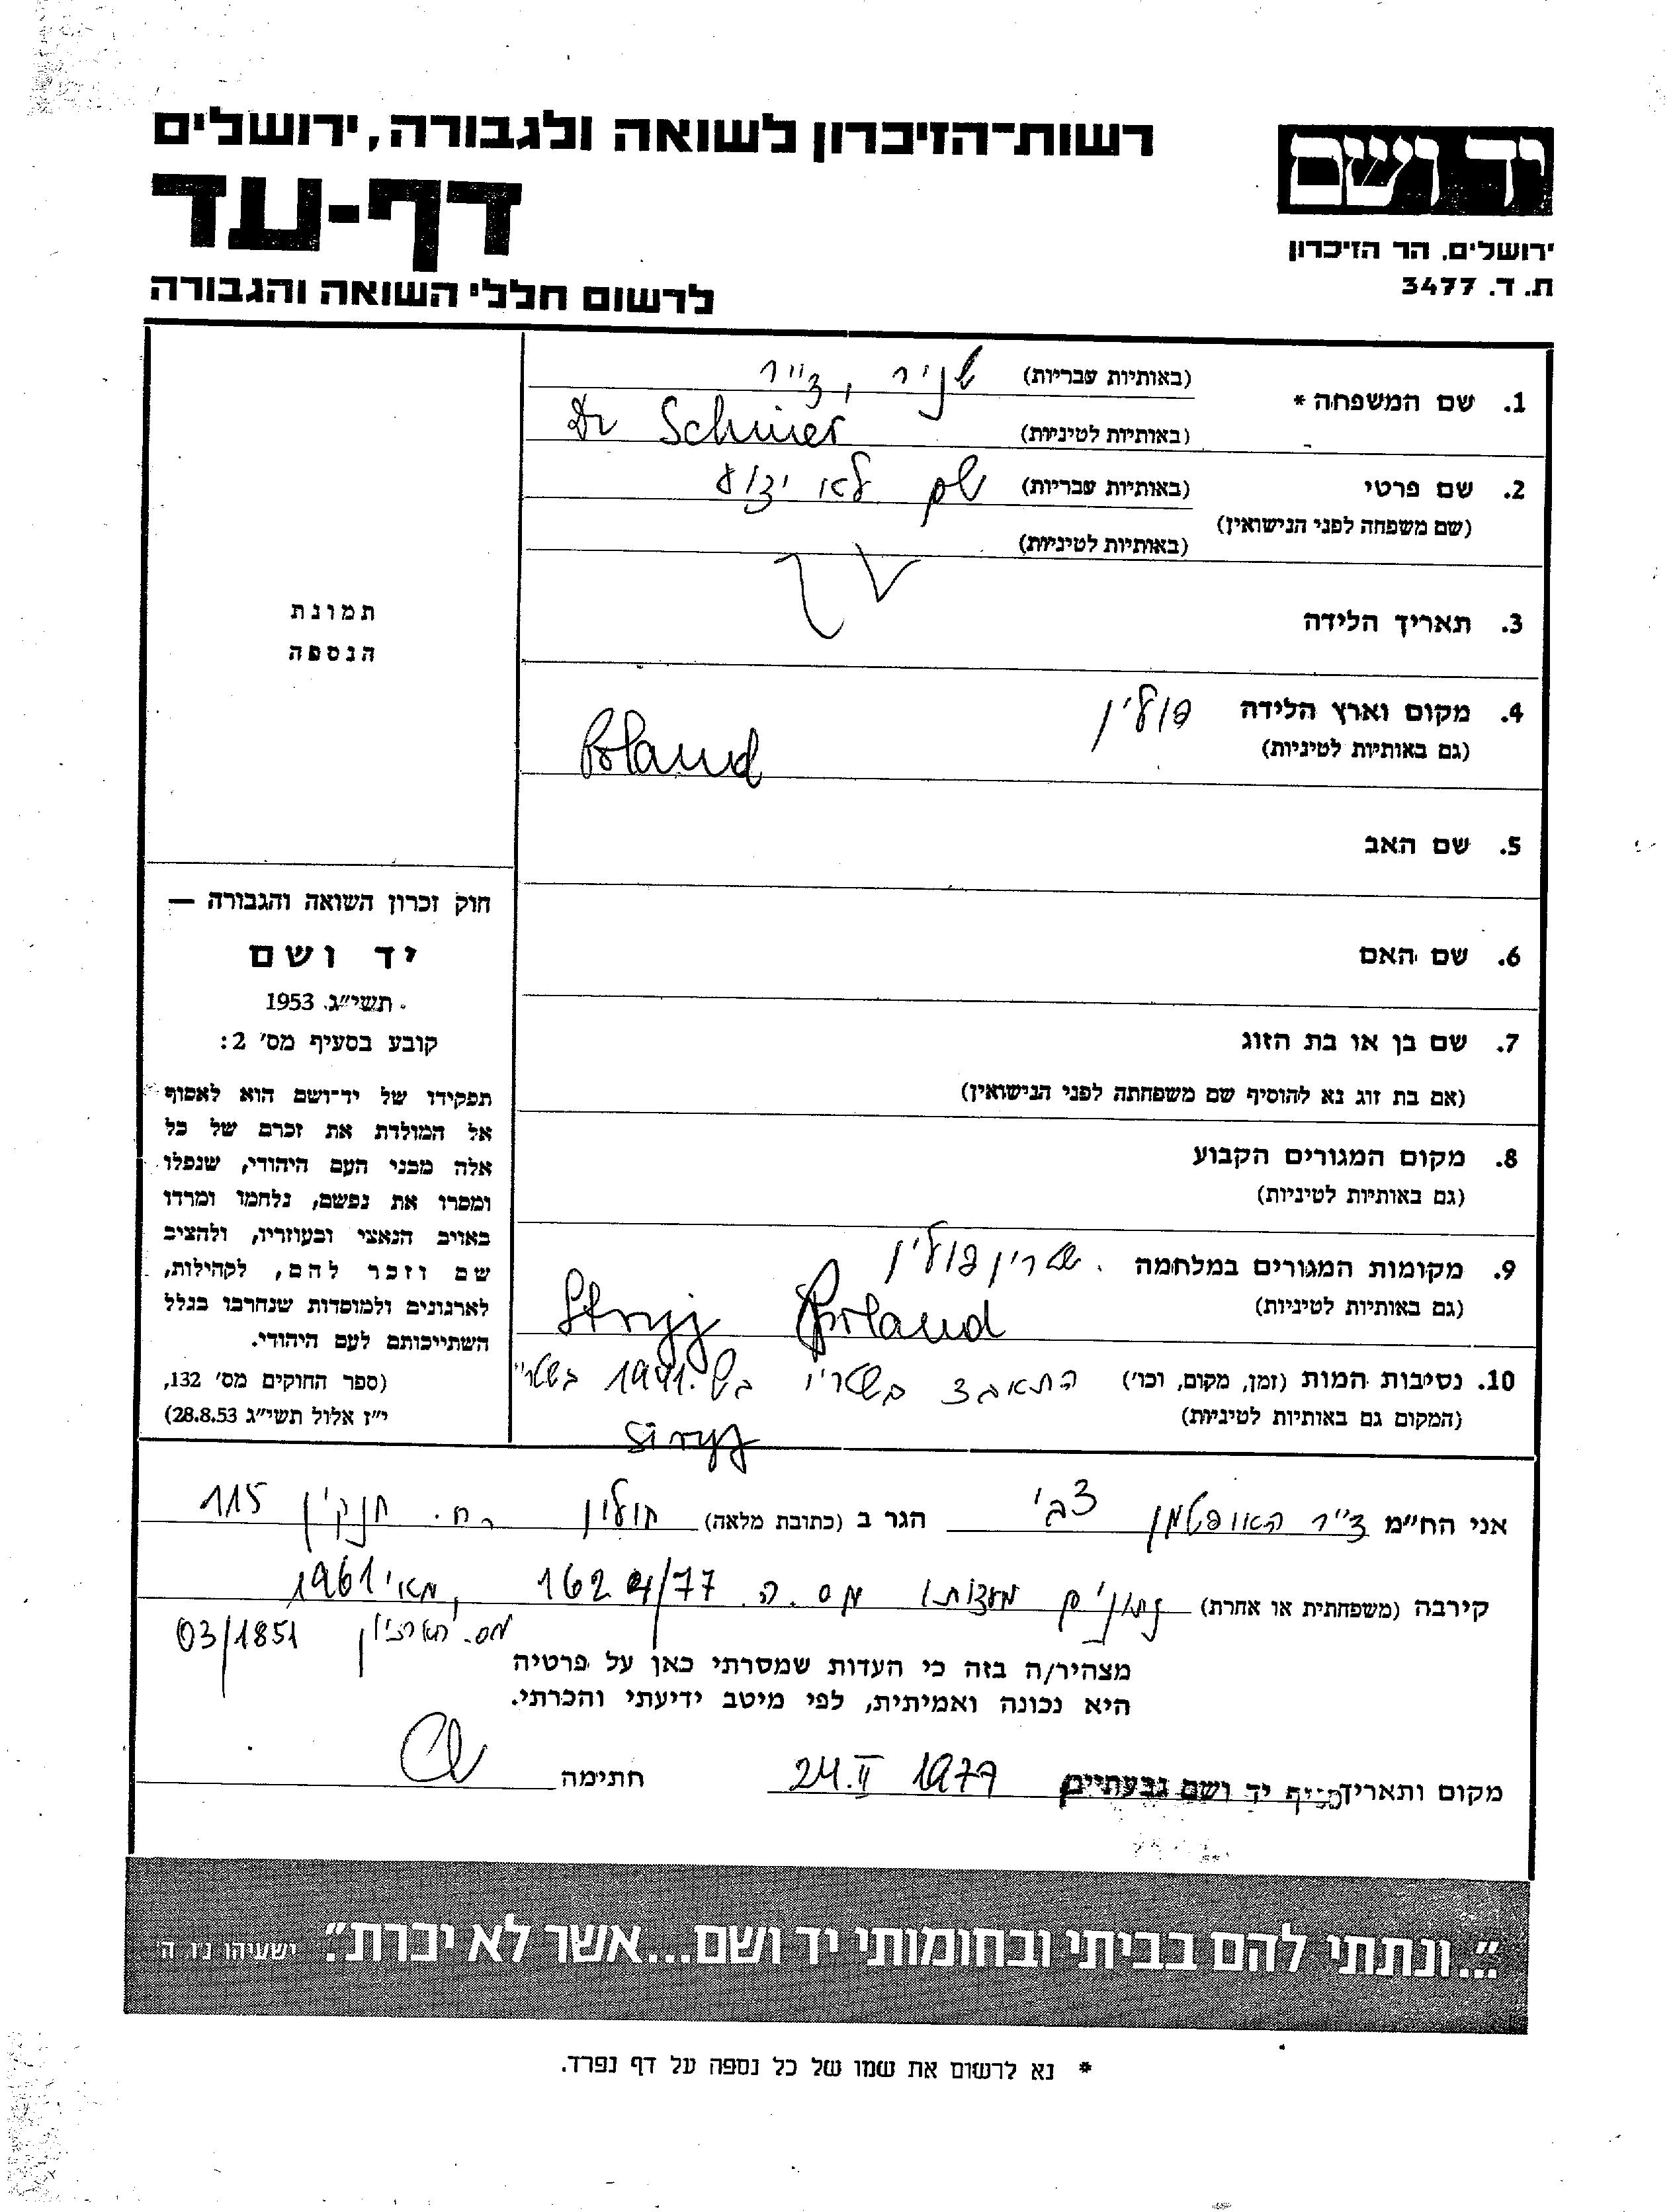 רשות-הזיכרון לשואה ולגבורה, ירושלים
יד ושם
דף-עד
ירושלים, הר הזיכרון
ת. ד. 3477
לרשום חללי השואה והגבורה
1. שם המשפחה * (באותיות עבריות) שניר, ד"ר
(באותיות לטיניות) Dr Schnier
2. שם פרטי (באותיות עבריות) שם לא ידוע
(שם משפחה לפני הנישואין)
(באותיות לטיניות)
3. תאריך הלידה
4. מקום וארץ הלידה פולין
(גם באותיות לטיניות) Poland
5. שם האב
6. שם האם
7. שם בן או בת הזוג
(אם בת זוג נא להוסיף שם משפחתה לפני הנישואין)
8. מקום המגורים הקבוע
(גם באותיות לטיניות)
9. מקומות המגורים במלחמה פולין
(גם באותיות לטיניות) Stryj Poland
10. נסיבות המות (זמן, מקום, וכו') התאבד בסטרי בש. 1941
(המקום גם באותיות לטיניות) Stryj
תמונת
הנספה
חוק זכרון השואה והגבורה —
יד ושם
תשי"ג. 1953
קובע בסעיף מס' 2:
תפקידו של יד-ושם הוא לאסוף
אל המולדת את זכרם של כל
אלה מבני העם היהודי, שנפלו
ומסרו את נפשם, נלחמו ומרדו
באויב הנאצי ובעוזריו, ולהציב
שם וזכר להם, לקהילות,
לארגונים ולמוסדות שנחרבו בגלל
השתייכותם לעם היהודי.
(ספר החוקים מס' 132,
י"ז אלול תשי"ג 28.8.53)
אני הח"מ ד"ר האופטמן צבי הגר ב (כתובת מלאה) חולון רח. חנקין 115
קירבה (משפחתית או אחרת) נתונים מעדותו מס. ה. 1624/77, מאי 1961
מס. הארכיון 03/1851
מצהיר/ה בזה כי העדות שמסרתי כאן על פרטיה
היא נכונה ואמיתית, לפי מיטב ידיעתי והכרתי.
מקום ותאריך סניף יד ושם גבעתיים 24.II 1977 חתימה
"...ונתתי להם בביתי ובחומותי יד ושם...אשר לא יכרת". ישעיהו נ"ו ה'
* נא לרשום את שמו של כל נספה על דף נפרד.